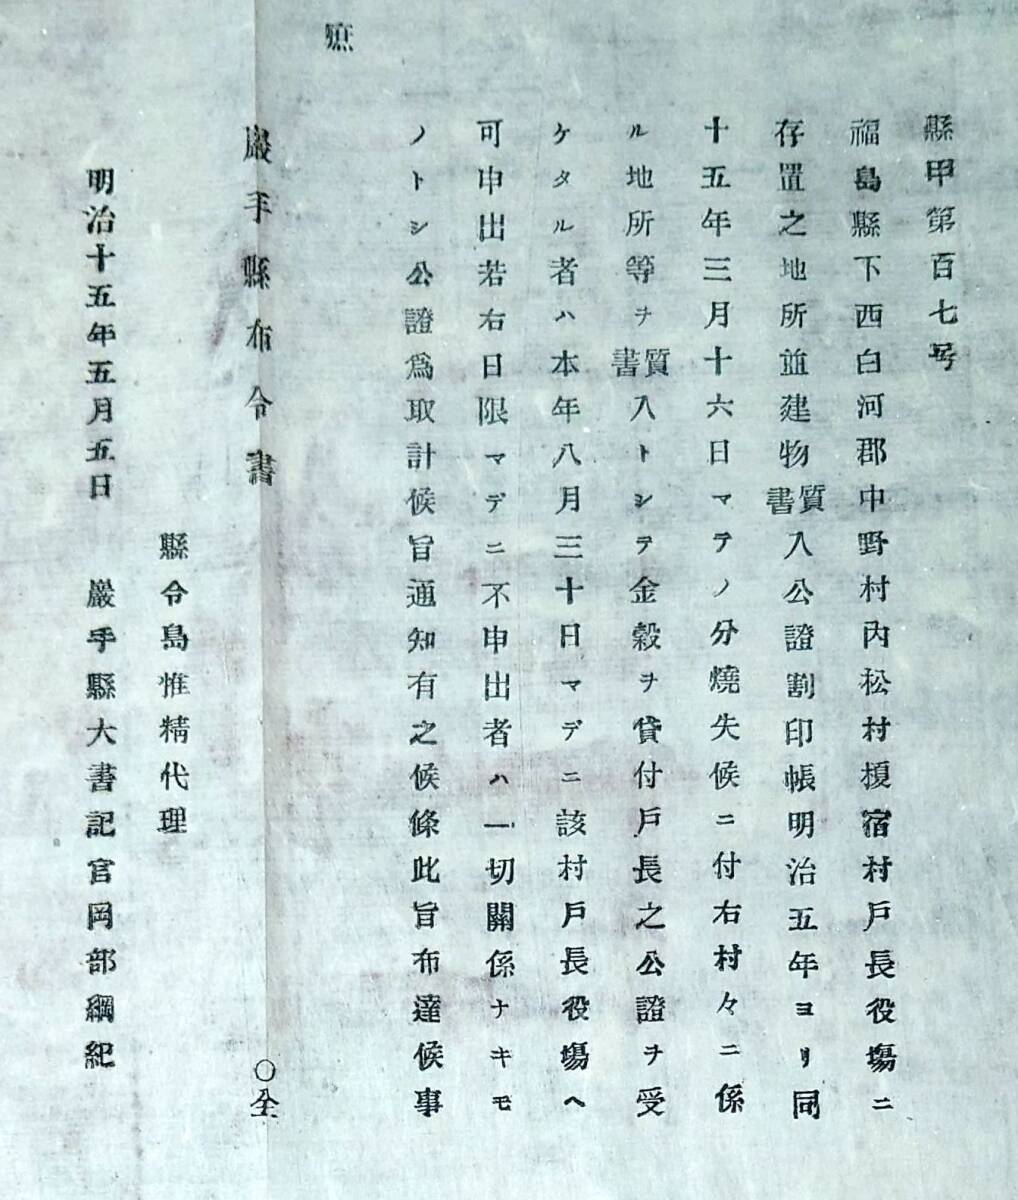 縣甲第百七号
福島縣下西白河郡中野村內松村榎宿村戸長役塲ニ
存置之地所並建物質書入公證割印帳明治五年ヨリ同
十五年三月十六日マテノ分燒失候ニ付右村々ニ係
ル地所等ヲ質書入トシテ金穀ヲ貸付戸長之公證ヲ受
ケタル者ハ本年八月三十日マデニ該村戸長役塲ヘ
可申出若右日限マデニ不申出者ハ一切關係ナキモ
ノトシ公證爲取計候旨通知有之候條此旨布達候事
庶
巖手縣布令書 〇全
縣令島惟精代理
明治十五年五月五日 巖手縣大書記官岡部綱紀